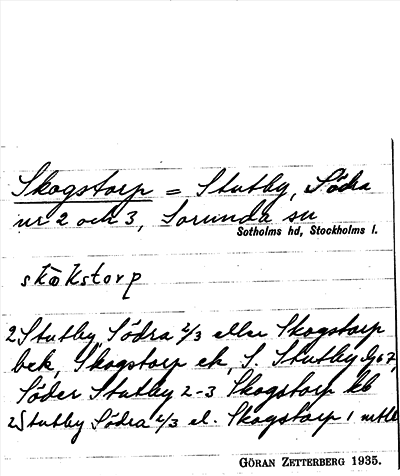 Skogstorp = Stutby, Södra
nr 2 och 3, Sorunda sn
Sotholms hd, Stockholms l.
skɷkstorp
2 Stutby Södra 2/3 eller Skogstorp
bek, Skogstorp ek, S. Stutby
Söder Stutby 2-3 Skogstorp kb
2 Stutby Södra 2/3 el. Skogstorp 1 mtl
GÖRAN ZETTERBERG 1935.